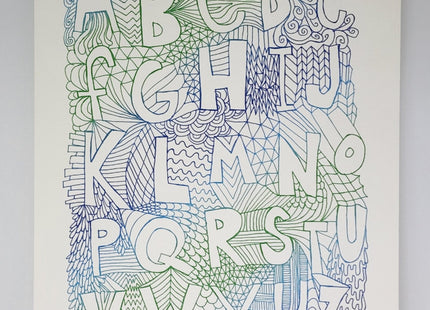 A B C D e
f G H I J
K L M N O
P Q R S T U
V W X Y Z